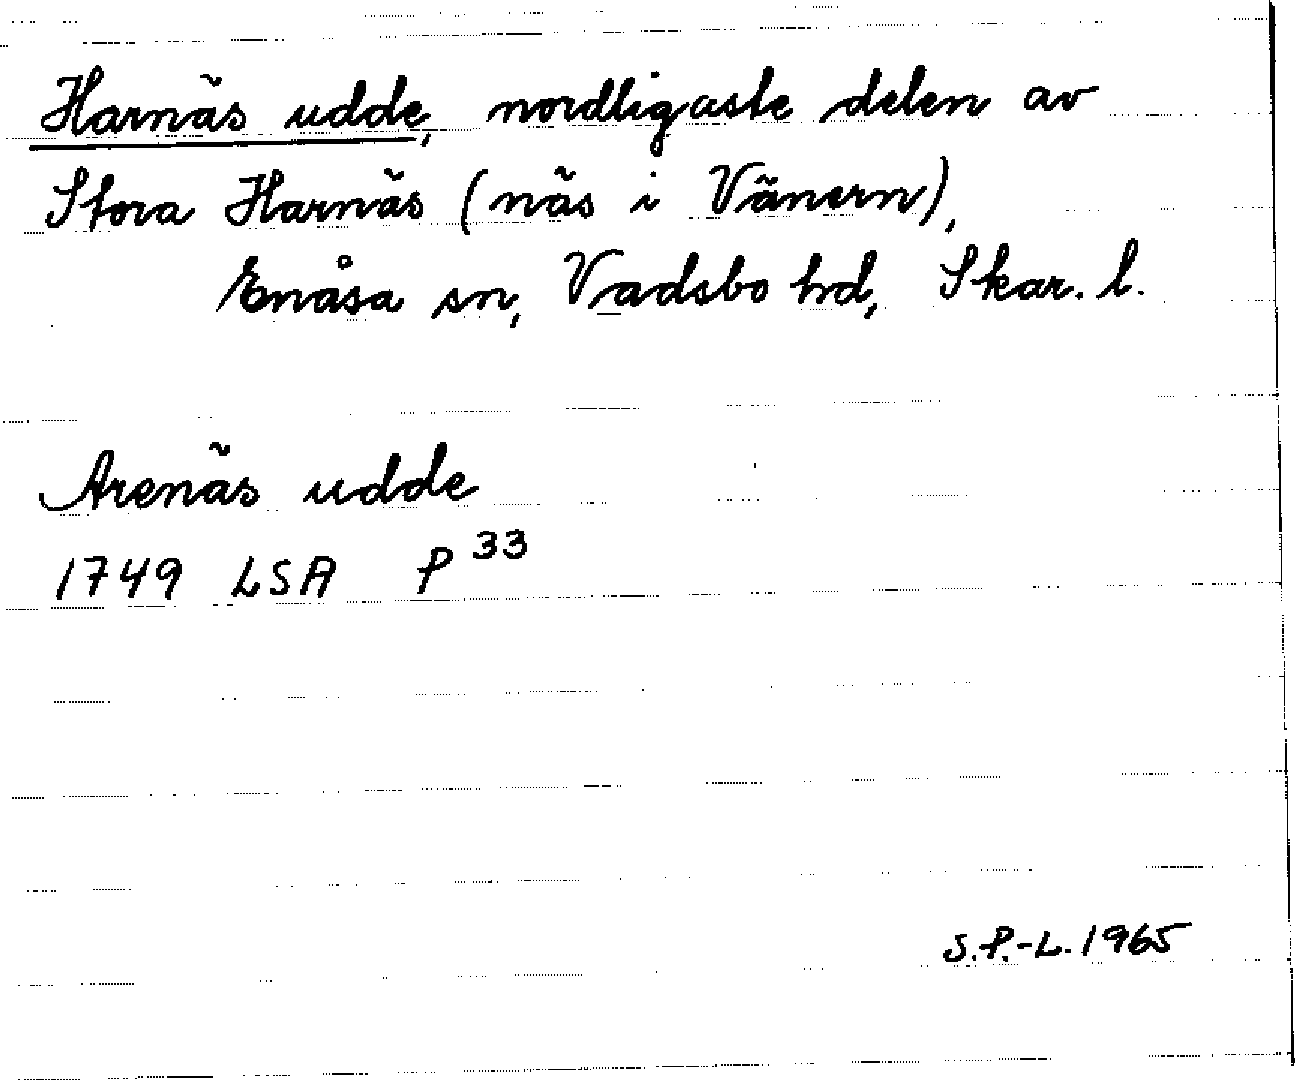 Harnäs udde, nordligaste delen av
Stora Harnäs (näs i Vänern),
Enåsa sn, Vadsbo hd, Skar. l.
Arenäs udde
1749 LSA P 33
S.P.-L. 1965